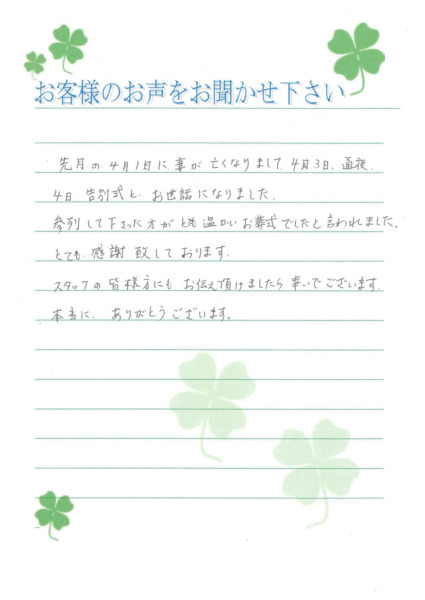 お客様のお声をお聞かせ下さい
先月の4月1日に、妻が亡くなりまして、4月3日、通夜、
4日、告別式と、お世話になりました。
参列して下さった方がとても温かいお葬式でしたと言われました。
とても、感謝致しております。
スタッフの皆様方にもお伝え頂けましたら幸いでございます。
本当に、ありがとうございます。